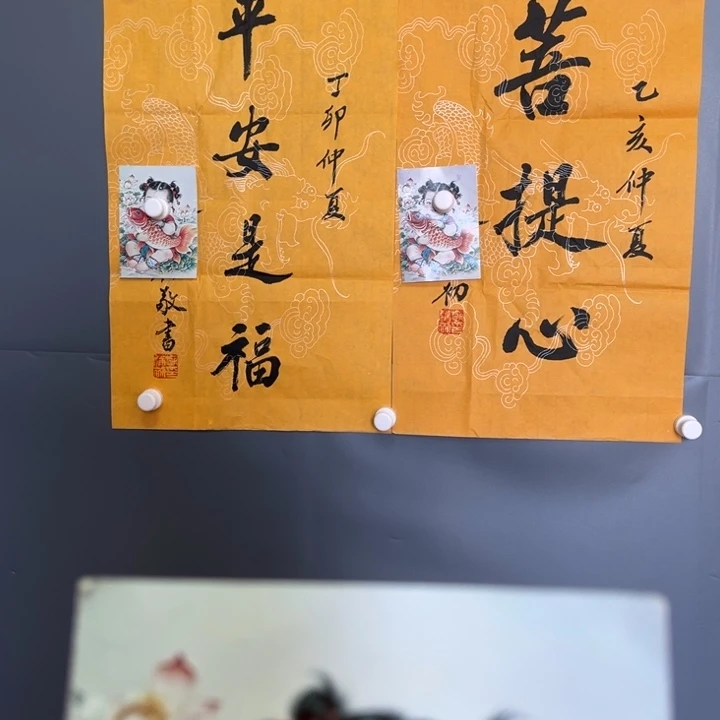 乙亥仲夏
菩提心
初
丁卯仲夏
平安是福
敬書